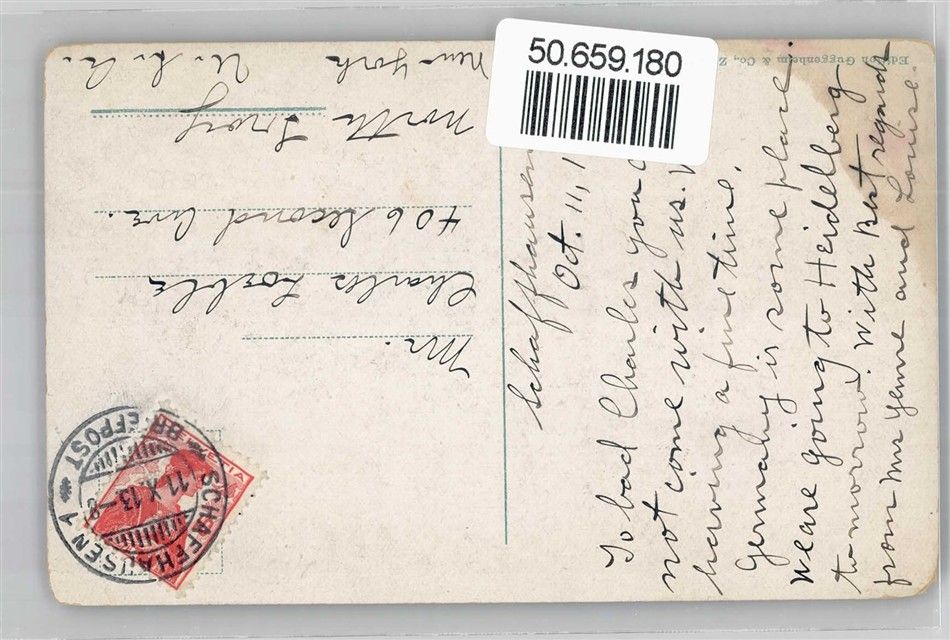 50.659.180
Schaffhausen
Oct. 11, 1
To bad Charles you c
not come with us.
having a fine time.
Germany is some place.
We are going to Heidelberg
tomorrow. With Best regards
from Mrs Yenne and Louise.
Mr.
Charles Loeble
406 Second Ave.
North Troy
New York
U. S. A.
Edition Guggenheim & Co., Z
SCHAFFHAUSEN 1
BRIEFPOST
11.X.13
HELVETIA